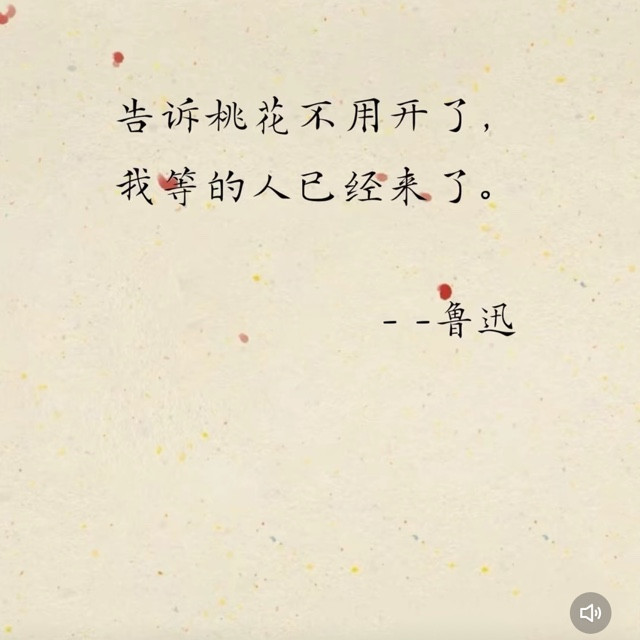 告诉桃花不用开了，
我等的人已经来了。
--鲁迅